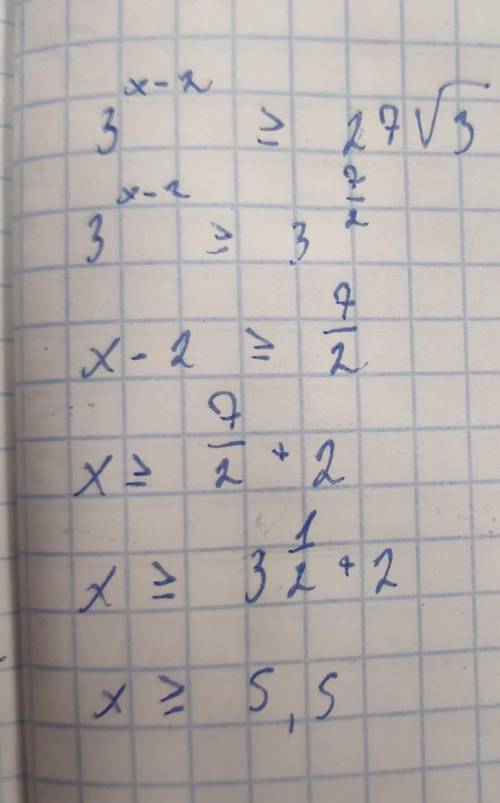 3^{x-2} ≥ 27√3
3^{x-2} ≥ 3^{7/2}
x - 2 ≥ 7/2
x ≥ 7/2 + 2
x ≥ 3 1/2 + 2
x ≥ 5,5